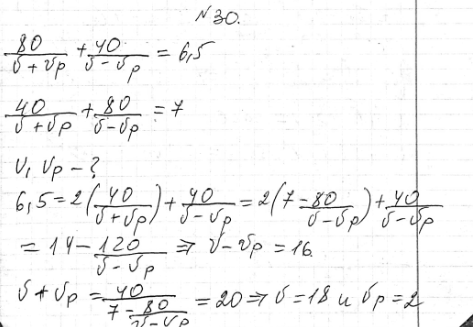 №30.
80/(v+vр) + 40/(v-vр) = 6,5
40/(v+vр) + 80/(v-vр) = 7
v, vр - ?
6,5 = 2(40/(v+vр)) + 40/(v-vр) = 2(7 - 80/(v-vр)) + 40/(v-vр)
= 14 - 120/(v-vр) ⇒ v-vр = 16.
v+vр = 40/(7 - 80/(v-vр)) = 20 ⇒ v=18 и vр=2